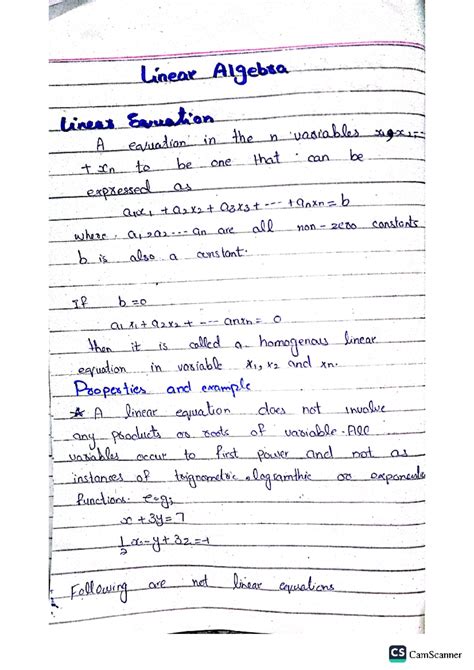 Linear Algebra
Linear Equation
A equation in the n variables x₁, x₂, ...
+ xn to be one that can be
expressed as
a₁x₁ + a₂x₂ + a₃x₃ + ... + anxn = b
where, a₁, a₂ ... an are all non-zero constants
b is also a constant.
If b=0
a₁x₁ + a₂x₂ + ... anxn = 0
then it is called a homogenous linear
equation in variable x₁, x₂ and xn.
Properties and example
* A linear equation does not involve
any products or roots of variable. All
variables occur to first power and not as
instances of trignometric, logarmthic or
functions. e.g;
x + 3y = 7
1/2 x - y + 3z = -1
Following are not linear equations
CS CamScanner